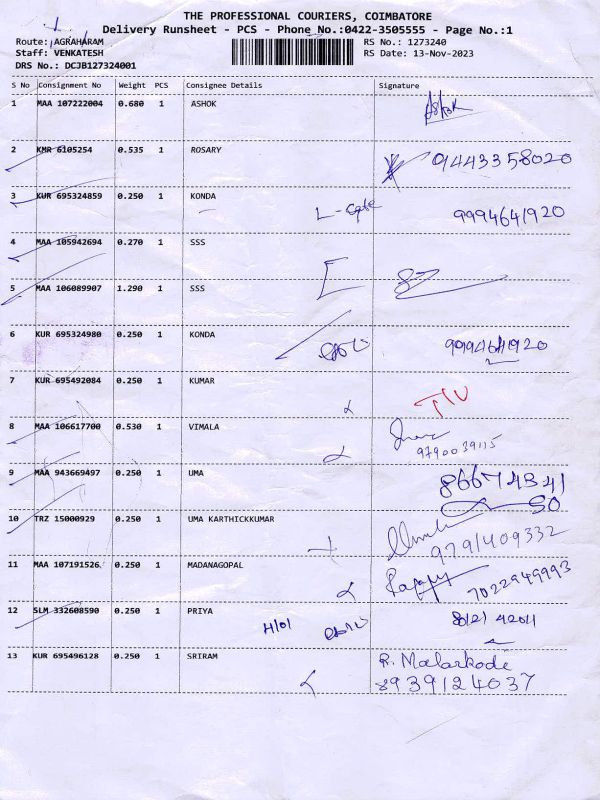 THE PROFESSIONAL COURIERS, COIMBATORE
Delivery Runsheet - PCS - Phone No.:0422-3505555 - Page No.:1
Route: AGRAHARAM RS No.: 1273240
Staff: VENKATESH RS Date: 13-Nov-2023
DRS No.: DCJB127324001
S No Consignment No Weight PCS Consignee Details Signature
1 MAA 107222004 0.680 1 ASHOK Ashok
2 KMR 6105254 0.535 1 ROSARY 09443358020
3 KUR 695324859 0.250 1 KONDA 9994641920
4 MAA 105942694 0.270 1 SSS
5 MAA 106089907 1.290 1 SSS
6 KUR 695324980 0.250 1 KONDA 9994641920
7 KUR 695492084 0.250 1 KUMAR
8 MAA 106617700 0.530 1 VIMALA 9790039115
9 MAA 943669497 0.250 1 UMA 86674341
50
10 TRZ 15000929 0.250 1 UMA KARTHICKKUMAR 9791409332
11 MAA 107191526 0.250 1 MADANAGOPAL 7022949993
12 SLM 332608590 0.250 1 PRIYA
13 KUR 695496128 0.250 1 SRIRAM R. Malarkodi
8939124037